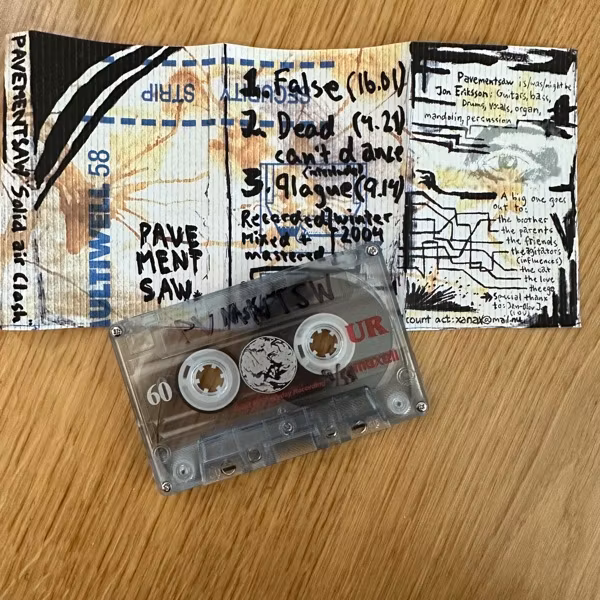 PAVEMENTSAW "Solid air Clash"
SECURITY
STRIP
ULTIWELL 58
PAVE
MENT
SAW.
1. False (16.01)
2. Dead (4.21)
can't dance
3. Plague (9.14)
Recorded/winter
Mixed + 2004
mastered
Pavementsaw is/was/might be
Jon Eriksson: Guitars, bass,
Drums, vocals, organ,
mandolin, percussion
A big one goes
out to:
the brother
the parents
the friends
the agitators
(influences)
the cat
the love
the ego
Special thanx
to:
60
UR
maxell